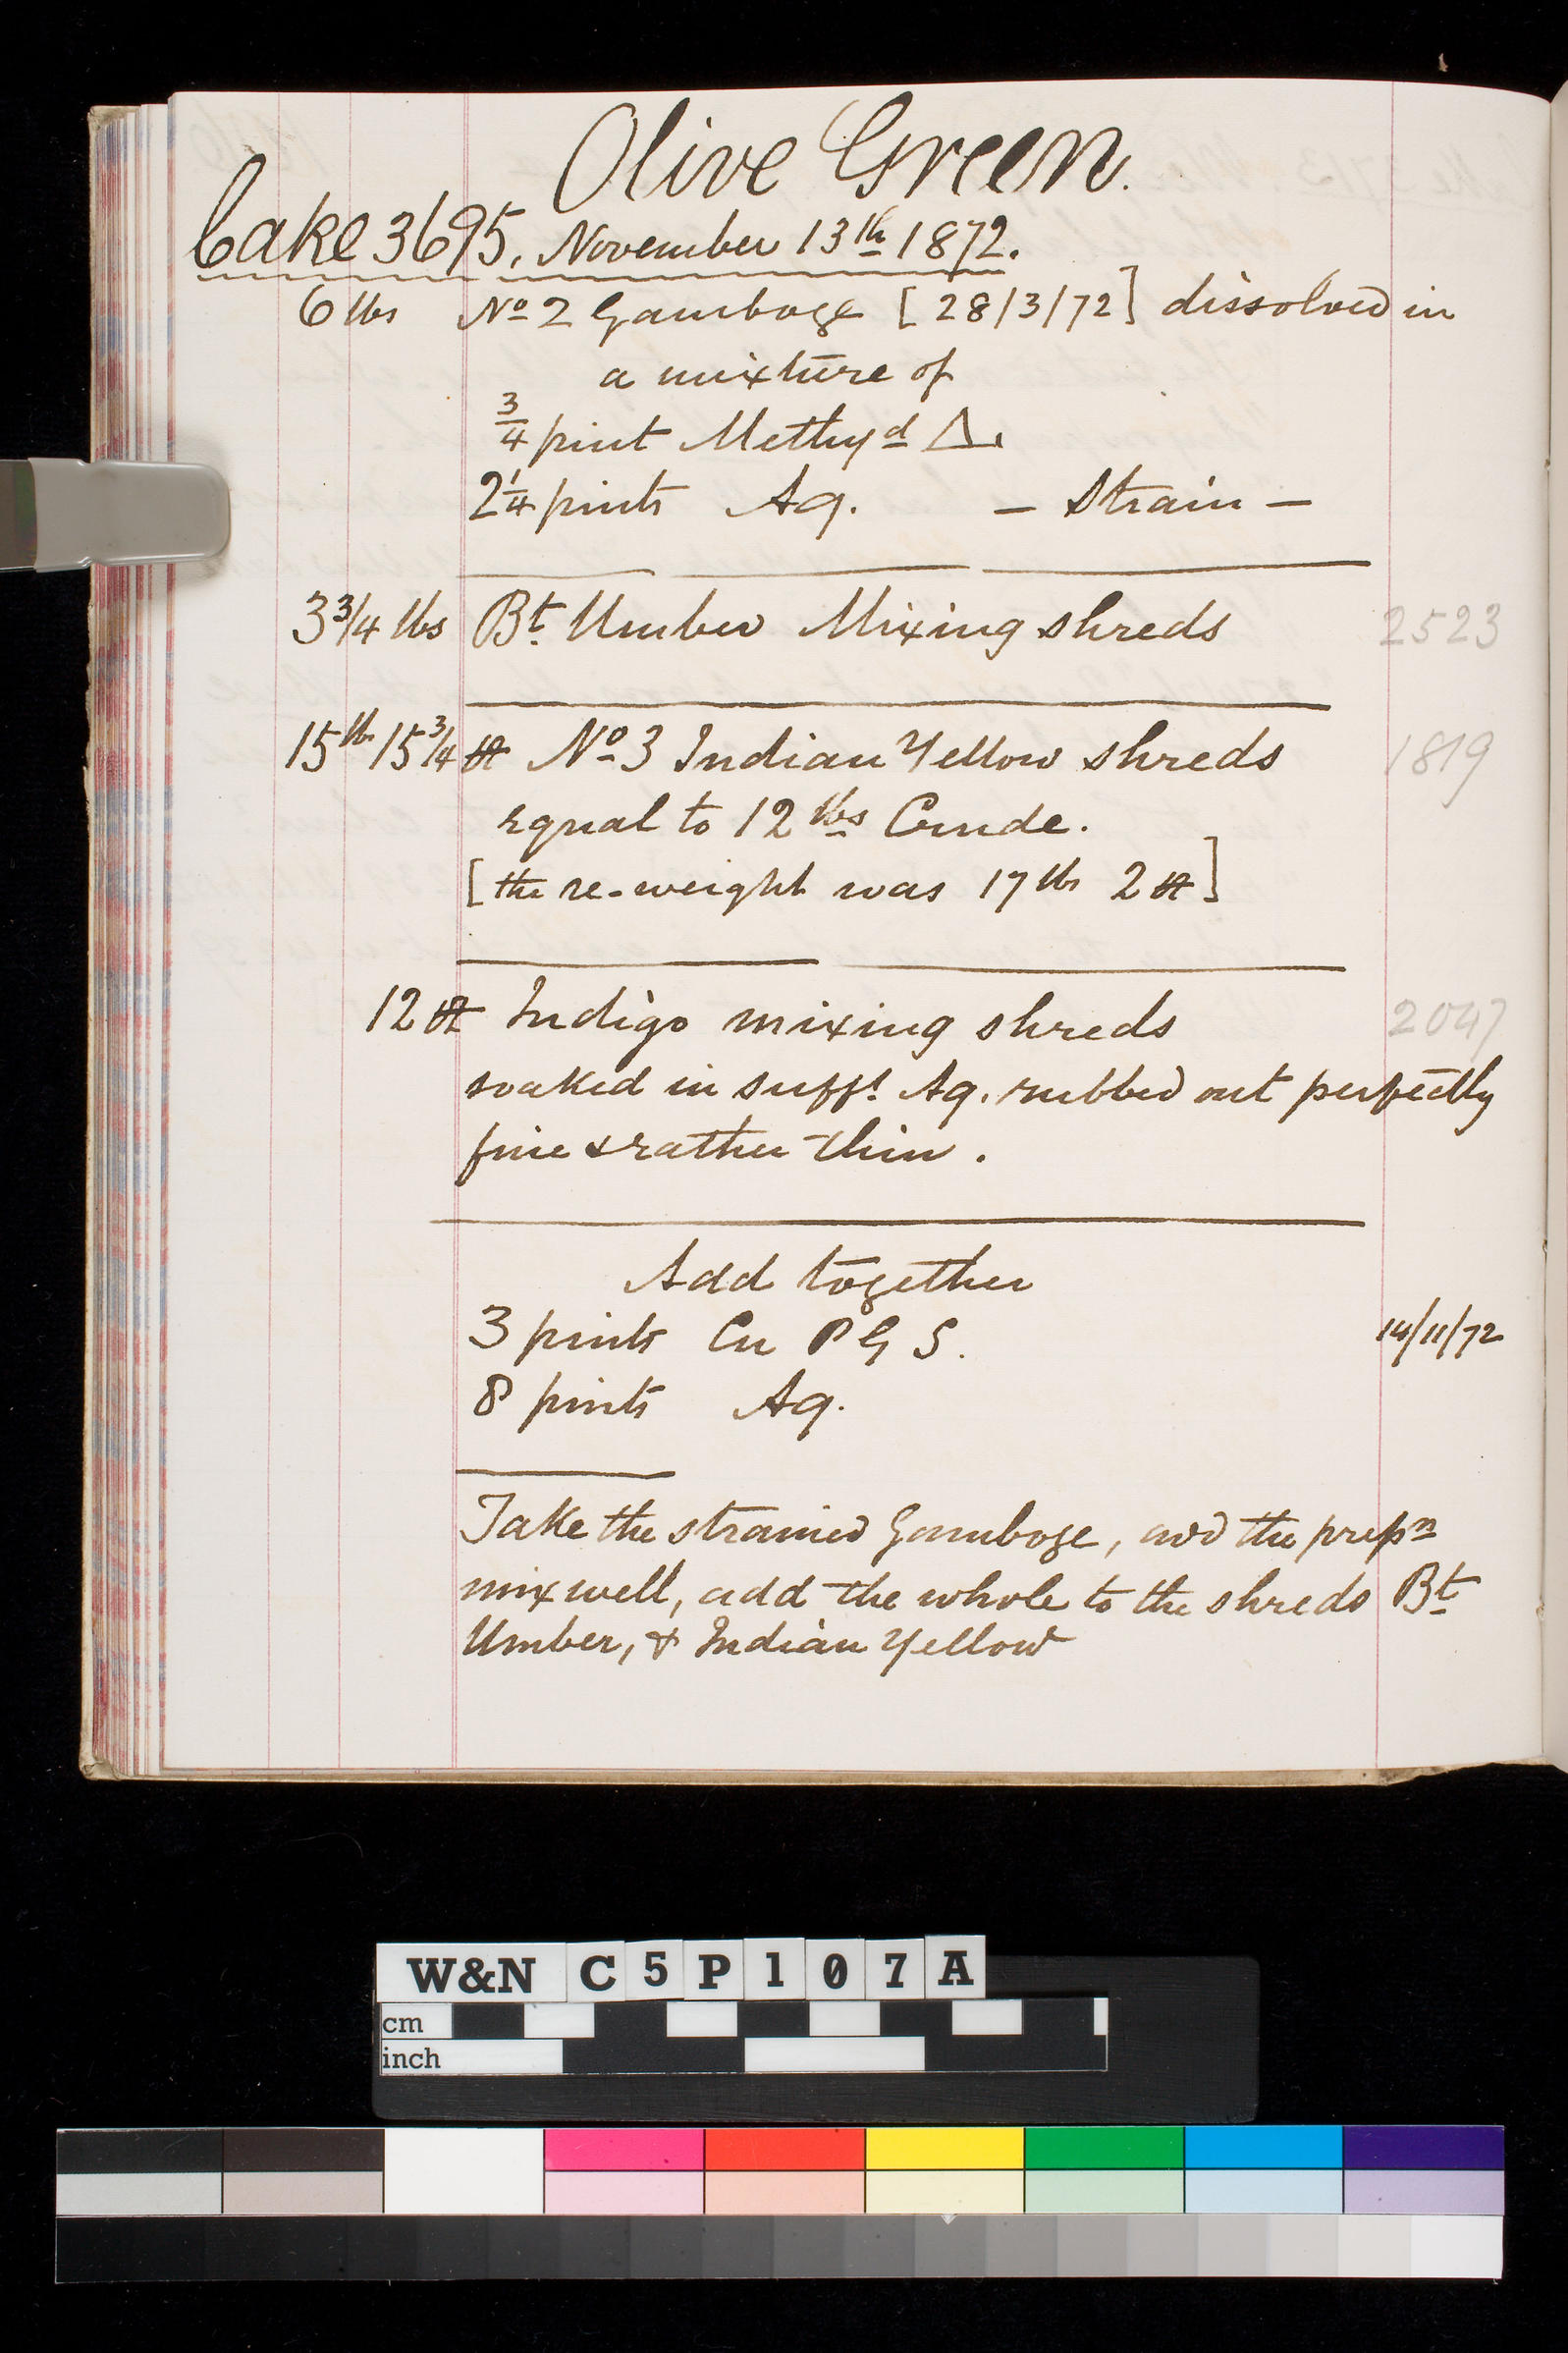 Olive Green.
Cake 3695. November 13th 1872.
6 lbs No 2 Gamboge [28/3/72] dissolved in
a mixture of
3/4 pint Methyd Δ.
2 1/4 pints Aq. – Strain –
3 3/4 lbs Bt Umber Mixing shreds 2523
15 lb 15 3/4 No 3 Indian Yellow shreds 1819
equal to 12 lbs Crude.
[the re-weight was 17 lbs 2]
12 Indigo mixing shreds 2047
soaked in sufft Aq. rubbed out perfectly
fine & rather thin.
Add together
3 pints Cn P G S. 14/11/72
8 pints Aq.
Take the strained Gamboge, add the prepn
mix well, add the whole to the shreds Bt
Umber, & Indian Yellow
W&N C5P107A
cm
inch